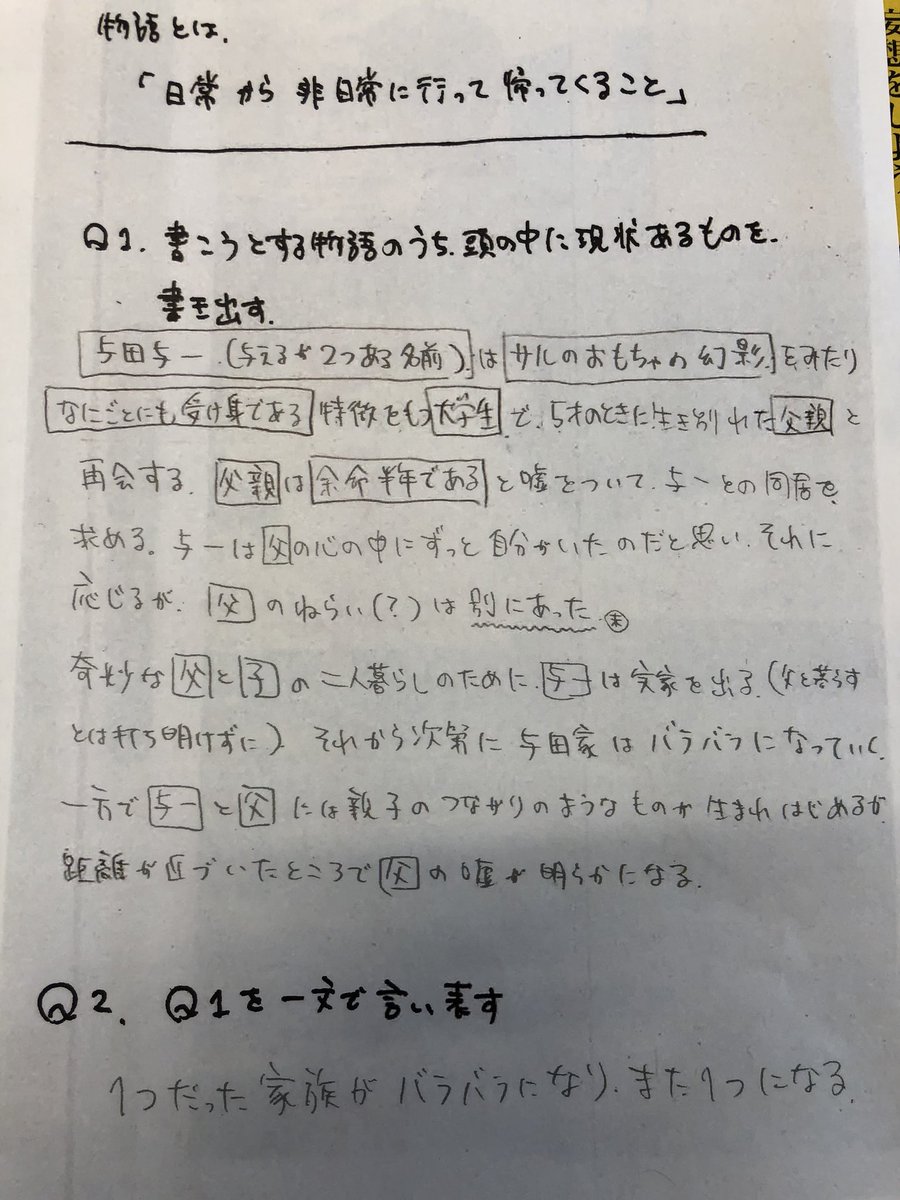 物語とは、
「日常から非日常に行って帰ってくること」
Q1. 書こうとする物語のうち、頭の中に現状あるものを、
書き出す。
与田与一(与えるが2つある名前)はサルのおもちゃの幻影をみたり
なにごとにも受け身である特徴をもつ大学生で、5才のときに生き別れた父親と
再会する。父親は余命半年であると嘘をついて、与一との同居を
求める。与一は父の心の中にずっと自分がいたのだと思い、それに
応じるが、父のねらい(?)は別にあった。末
奇妙な父と子の二人暮らしのために、与一は実家を出る。(父と暮らす
とは打ち明けずに)それから次第に与田家はバラバラになっていく。
一方で与一と父には親子のつながりのようなものが生まれはじめるが、
距離が近づいたところで父の嘘が明らかになる。
Q2. Q1を一文で言い表す
1つだった家族がバラバラになり、また1つになる。
妄想をし